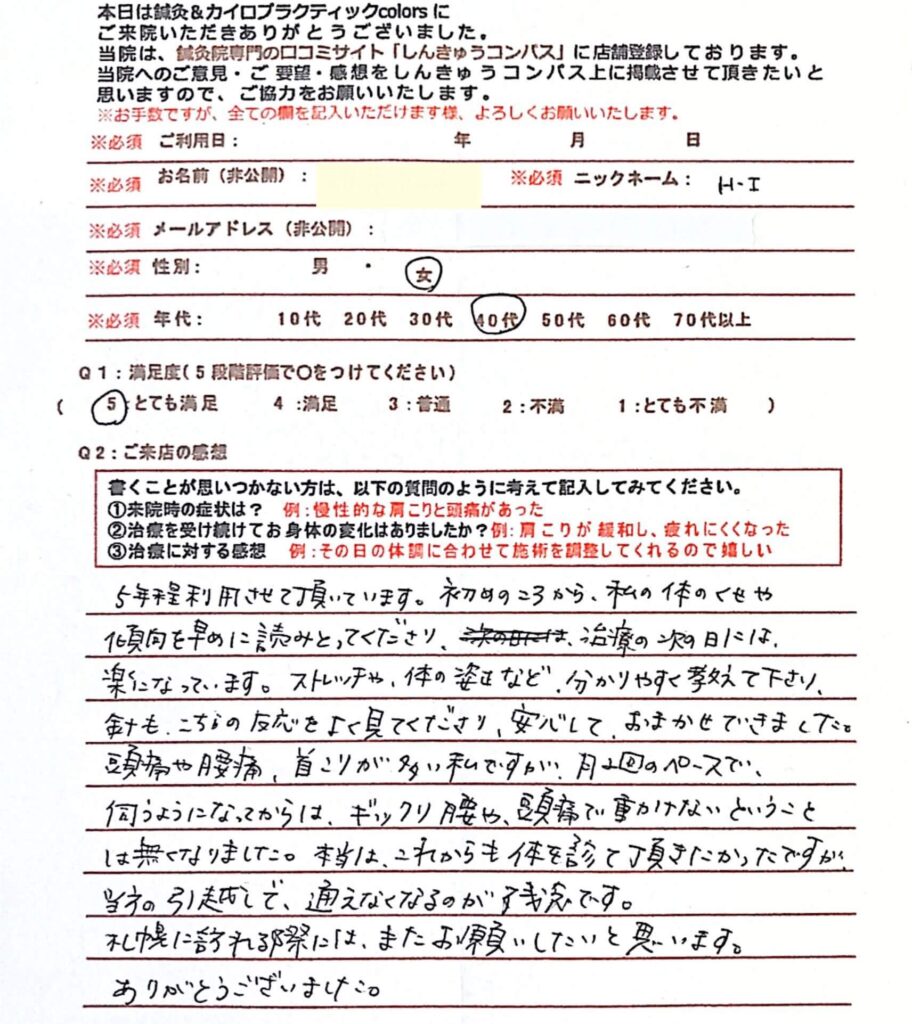 本日は鍼灸&カイロプラクティックcolorsに
ご来院いただきありがとうございました。
当院は、鍼灸院専門の口コミサイト「しんきゅうコンパス」に店舗登録しております。
当院へのご意見・ご要望・感想をしんきゅうコンパス上に掲載させて頂きたいと
思いますので、ご協力をお願いいたします。
※お手数ですが、全ての欄を記入いただけます様、よろしくお願いいたします。
※必須 ご利用日： 年 月 日
※必須 お名前（非公開）： ※必須 ニックネーム： H-I
※必須 メールアドレス（非公開）：
※必須 性別： 男 ・ 女
※必須 年代： 10代 20代 30代 40代 50代 60代 70代以上
Q1：満足度（5段階評価で〇をつけてください）
（ 5：とても満足 4：満足 3：普通 2：不満 1：とても不満 ）
Q2：ご来店の感想
書くことが思いつかない方は、以下の質問のように考えて記入してみてください。
①来院時の症状は？ 例：慢性的な肩こりと頭痛があった
②治療を受け続けてお身体の変化はありましたか？例：肩こりが緩和し、疲れにくくなった
③治療に対する感想 例：その日の体調に合わせて施術を調整してくれるので嬉しい
5年程利用させて頂いています。初めのころから、私の体のくせや
傾向を早めに読みとってくださり、次の日には、治療の次の日には、
楽になっています。ストレッチや、体の姿勢など、分かりやすく教えて下さり、
針も、こちらの反応をよく見てくださり、安心して、おまかせできました。
頭痛や腰痛、首こりが多い私ですが、月2回のペースで、
伺うようになってからは、ギックリ腰や、頭痛で動けないということ
は無くなりました。本当は、これからも体を診て頂きたかったですが、
当方の引越しで、通えなくなるのが残念です。
札幌に訪れる際には、またお願いしたいと思います。
ありがとうございました。